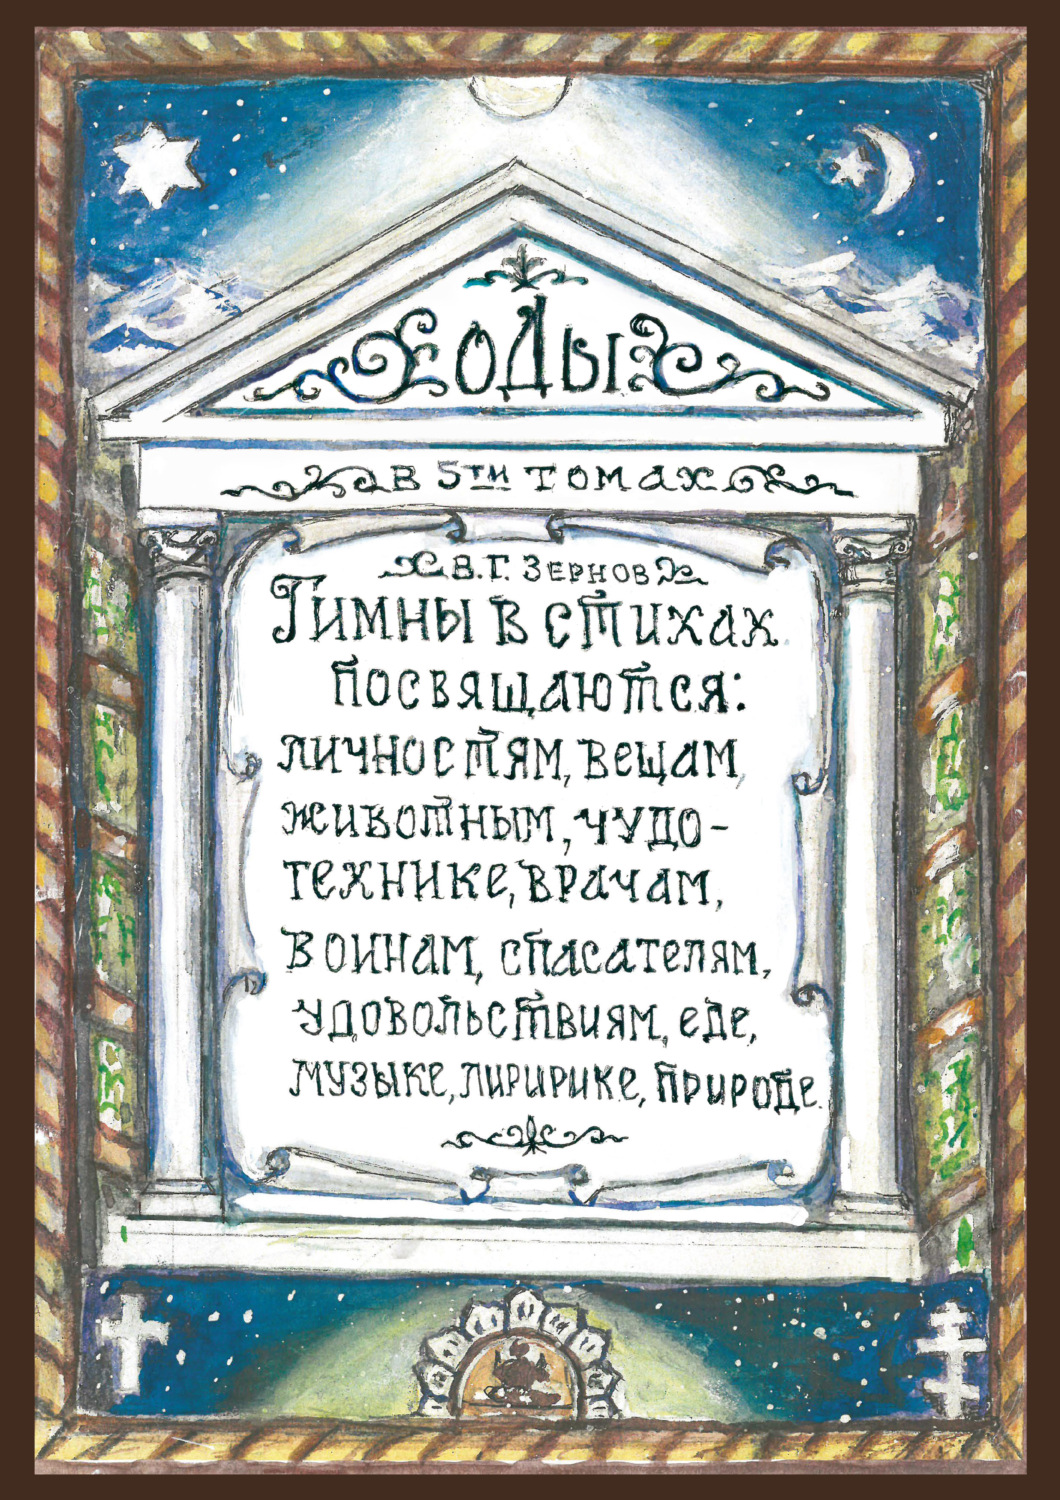 ОДЫ
В 5ТИ ТОМАХ
В.Г. ЗЕРНОВ
Гимны в стихах
посвящаются:
личностям, вещам,
животным, чудо-
технике, врачам,
воинам, спасателям,
удовольствиям, еде,
музыке, лиририке, природе.